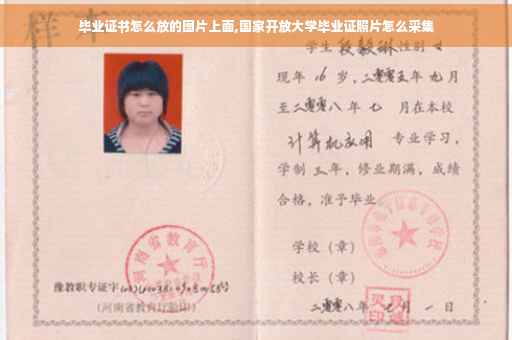 毕业证书怎么放的图片上面,国家开放大学毕业证照片怎么采集
样本
学生段毅琳性别女
现年16岁,二零零五年九月
至二零零八年七月在本校
计算机应用 专业学习,
学制三年,修业期满,成绩
合格,准予毕业
学校(章)
校长(章)
二零零八年七月一日
河南省教育厅
豫教职专证字
(河南省教育厅验印)